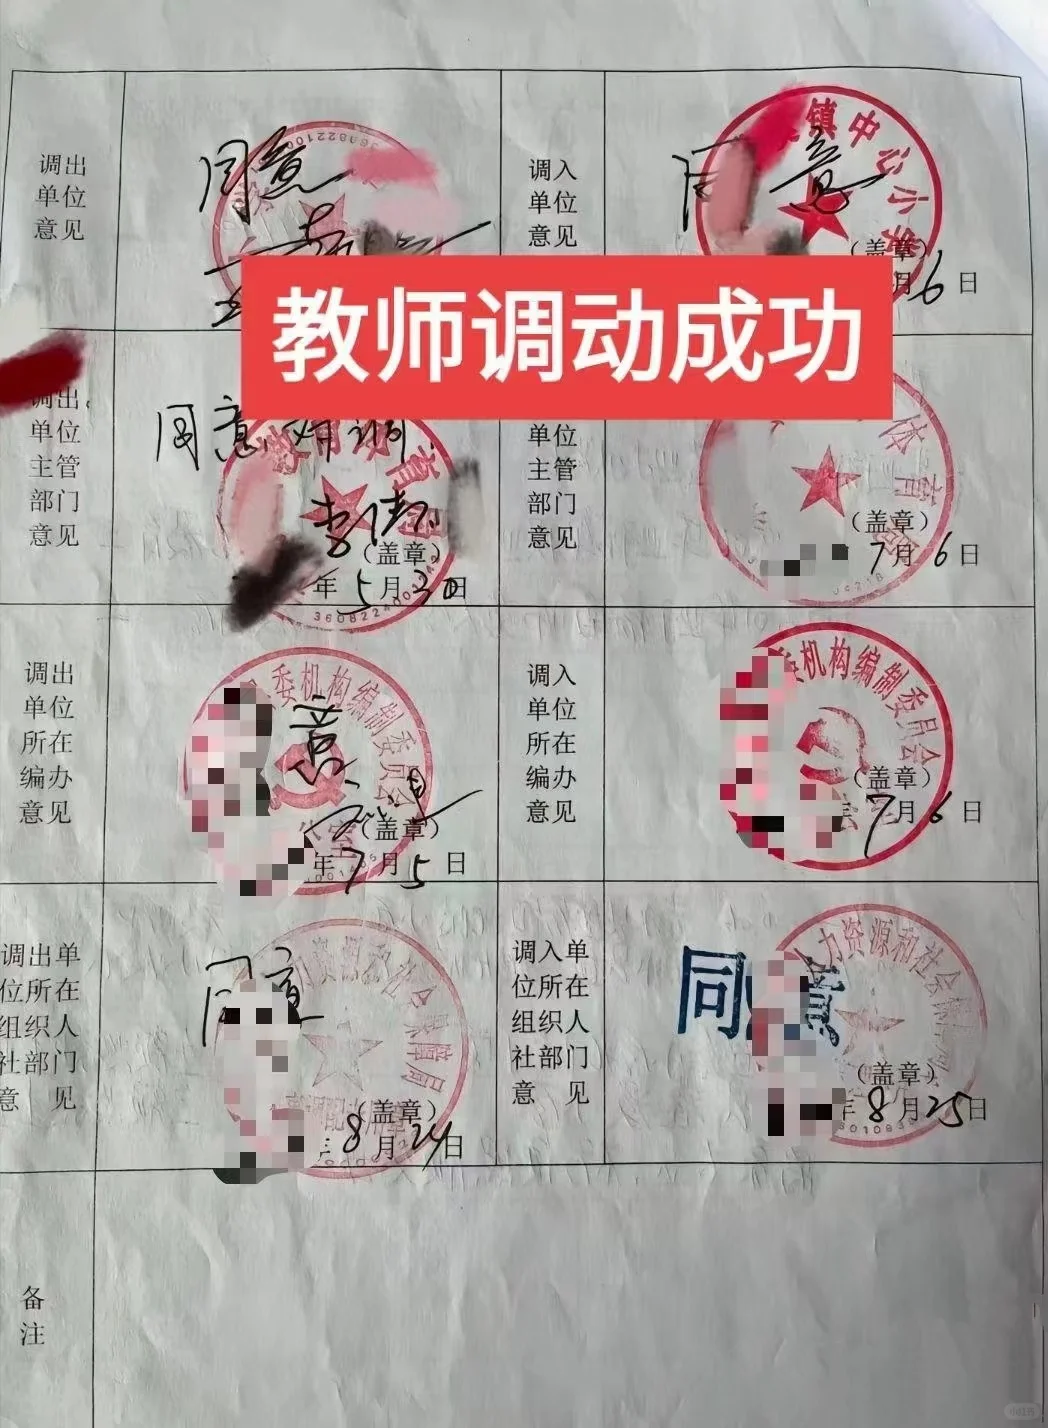 调出
单位
意见
同意
调入
单位
意见
同意
镇中心小学
(盖章)
月6日
教师调动成功
调出
单位
主管
部门
意见
同意对调
(盖章)
年5月30日
3608224001
单位
主管
部门
意见
体育
(盖章)
7月6日
调出
单位
所在
编办
意见
委机构编制委员会
意
(盖章)
年7月5日
调入
单位
所在
编办
意见
委机构编制委员会
(盖章)
年7月6日
调出单
位所在
组织人
社部门
意 见
同意
(盖章)
8月24日
调入单
位所在
组织人
社部门
意 见
同意
力资源和社会
(盖章)
年8月25日
备
注
小红书